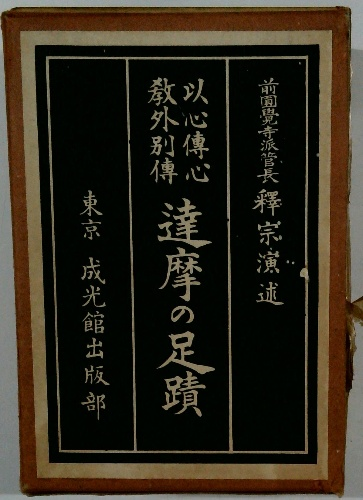 前圓覺寺派管長 釋宗演述
以心傳心
敎外別傳
達摩の足蹟
東京 成光館出版部